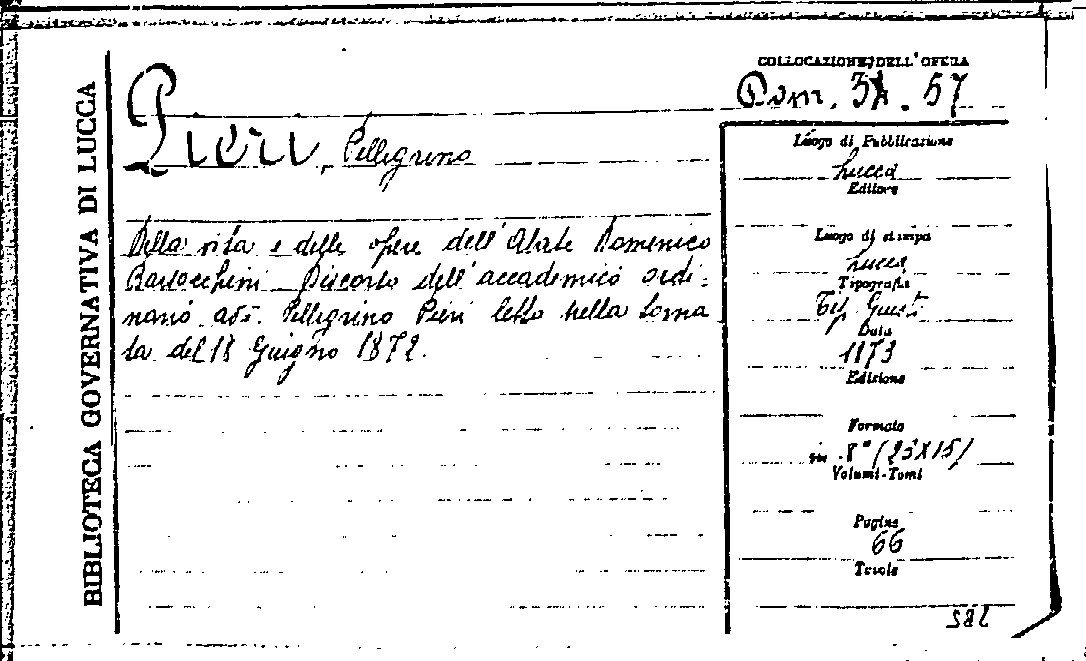 BIBLIOTECA GOVERNATIVA DI LUCCA
COLLOCAZIONE DELL'OPERA
Pieri, Pellegrino
Della vita e delle opere dell'Abate Domenico
Barsocchini. Discorso dell'accademico ordi-
nario avv. Pellegrino Pieri letto nella torna
ta del 18 Giugno 1872.
Luogo di Pubblicazione
Lucca
Editore
Luogo di stampa
Lucca
Tipografia
Tip. Giusti
Data
1873
Edizione
Formato
in 8° (23X15)
Volumi-Tomi
Pagine
66
Tavole